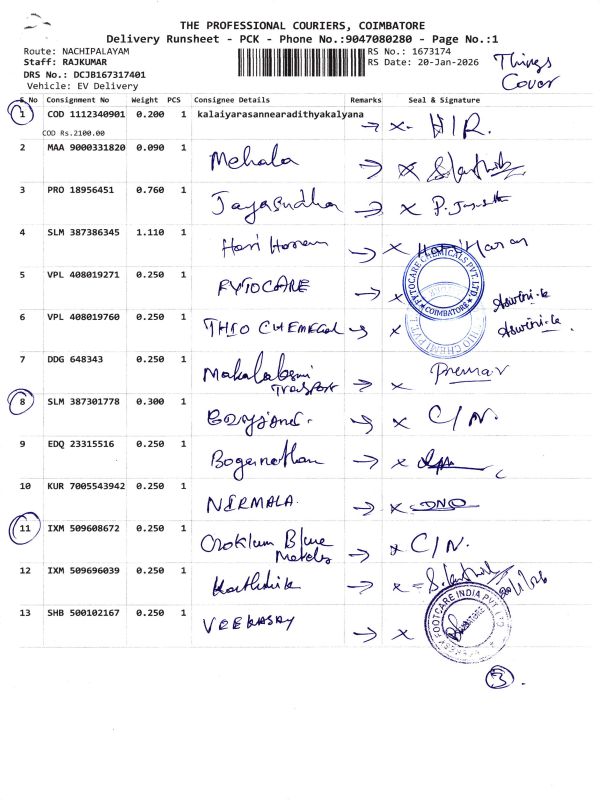 THE PROFESSIONAL COURIERS, COIMBATORE
Delivery Runsheet - PCK - Phone No.:9047080280 - Page No.:1
Route: NACHIPALAYAM
RS No.: 1673174
Staff: RAJKUMAR
RS Date: 20-Jan-2026
Things
Cover
DRS No.: DCJB167317401
Vehicle: EV Delivery
S.No Consignment No Weight PCS Consignee Details Remarks Seal & Signature
1 COD 1112340901 0.200 1 kalaiyarasannearadithyakalyana → x- H/R.
COD Rs.2100.00
2 MAA 9000331820 0.090 1 Mehala → x
3 PRO 18956451 0.760 1 Jayasudha → x
4 SLM 387386345 1.110 1 Hari Haran → x Hari Haran
5 VPL 408019271 0.250 1 FYTOCARE → x FYTOCARE CHEMICALS PVT.LTD COIMBATORE Aswini.k
6 VPL 408019760 0.250 1 THIO CHEMICAL → x Aswini.k
7 DDG 648343 0.250 1 Mahalakshmi Transport → x
8 SLM 387301778 0.300 1 → x C/N.
9 EDQ 23315516 0.250 1 Boganathan → x
10 KUR 7005543942 0.250 1 NIRMALA. → x
11 IXM 509608672 0.250 1 Blue Metals → x C/N.
12 IXM 509696039 0.250 1 Karthik → x
13 SHB 500102167 0.250 1 VEEKASAY → x FOOTCARE INDIA PVT LTD
3.